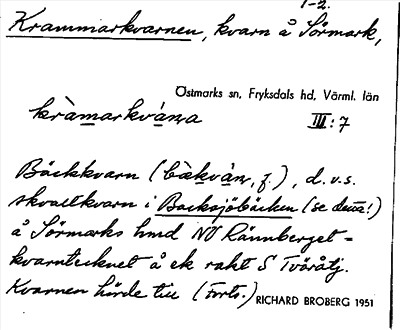 1-2.
Krammarkvarnen, kvarn å Sörmark,
Östmarks sn, Fryksdals hd, Värml. län
kràmarkvà̄ṇa III:7
Bäckkvarn (bàkvàṇ, f.), d.v.s.
skvaltkvarn i Backsjöbäcken (se denna!)
å Sörmarks hmd NV Rännberget =
kvarntecknet å ek rakt S Tväråtj.
Kvarnen hörde till (Forts.)
RICHARD BROBERG 1951